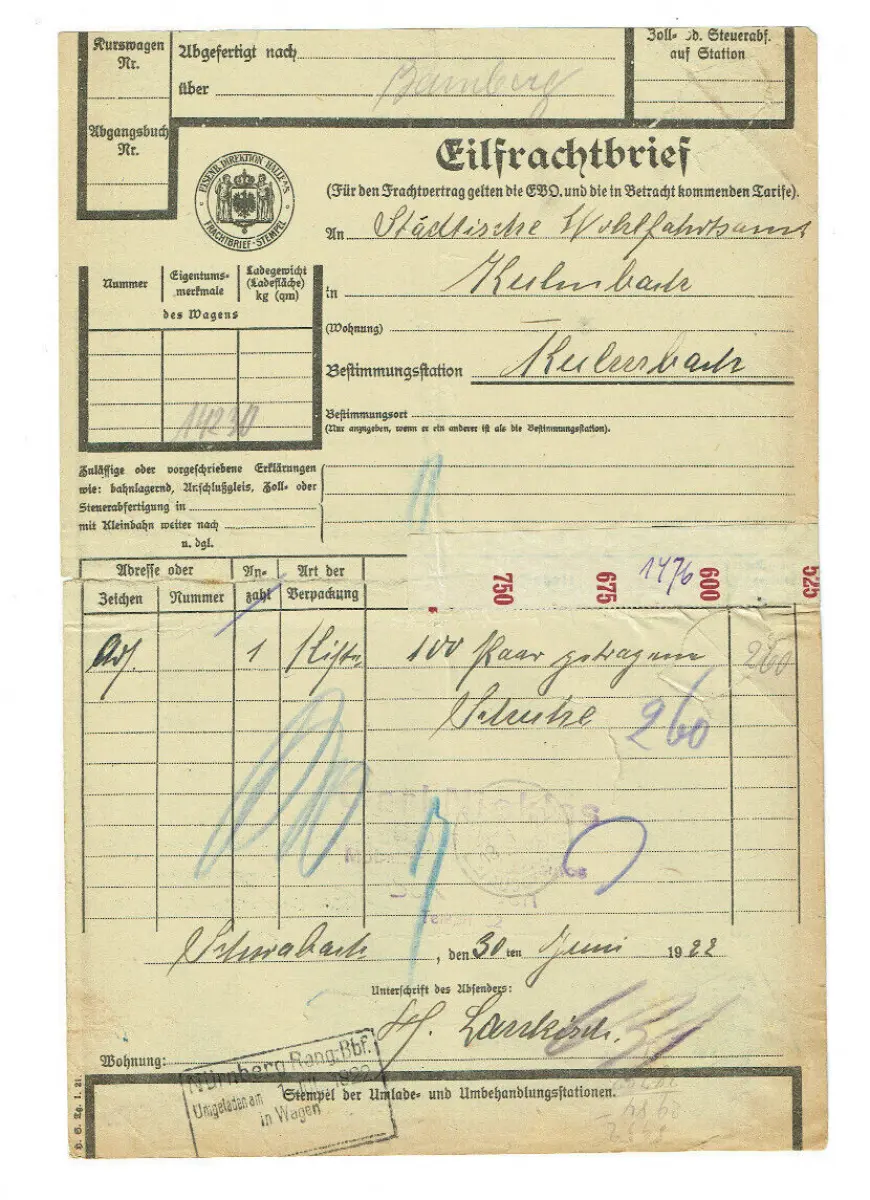 Kurswagen
Nr.
Abgefertigt nach
über Bamberg
Zoll- od. Steuerabf.
auf Station
Abgangsbuch
Nr.
EISENB. DIREKTION HALLE A/S.
FRACHTBRIEF-STEMPEL
Eilfrachtbrief
(Für den Frachtvertrag gelten die EVO. und die in Betracht kommenden Tarife).
An Städtische Wohlfahrtsamt
in Kulmbach
(Wohnung)
Bestimmungsstation Kulmbach
Bestimmungsort
(Nur anzugeben, wenn er ein anderer ist als die Bestimmungsstation).
Nummer
Eigentums-
merkmale
Ladegewicht
(Ladefläche)
kg (qm)
des Wagens
14230
Zulässige oder vorgeschriebene Erklärungen
wie: bahnlagernd, Anschlußgleis, Zoll- oder
Steuerabfertigung in
mit Kleinbahn weiter nach
u. dgl.
Adresse oder
Zeichen Nummer
An-
zahl
Art der
Verpackung
750 675 1476 600 525
Adr. 1 Kiste 100 Paar getragene 260
Schuhe 260
Schwabach, den 30ten Juni 1922
Unterschrift des Absenders:
Wohnung:
Nürnberg Rang. Bbf.
Umgeladen am 1. 1922
in Wagen
Stempel der Umlade- und Umbehandlungsstationen.